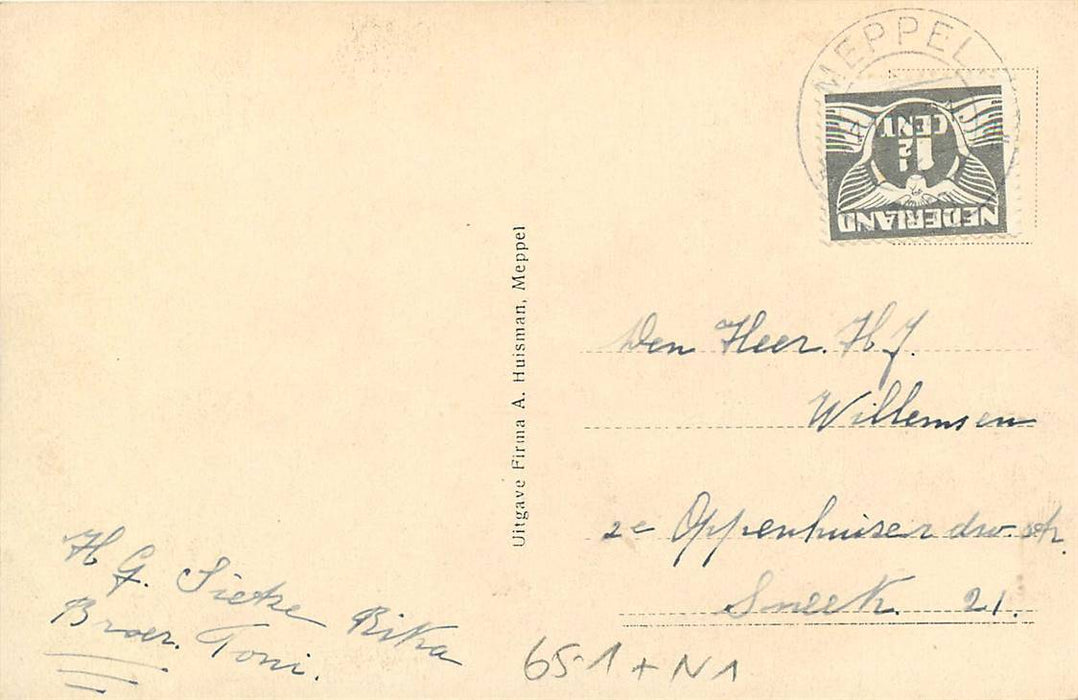 MEPPEL
NEDERLAND
1½
CENT
Uitgave Firma A. Huisman, Meppel
Den Heer. H J.
Willemsen
2e Oppenhuizer dw. str.
Sneek 21.
H G. Sietze Rika
Broer. Toni.
65-1 + N1